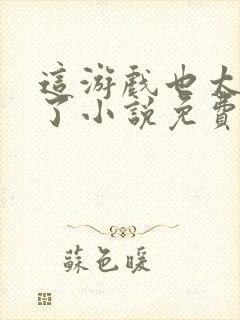 這游戲也太
了小說免費
蘇色暖